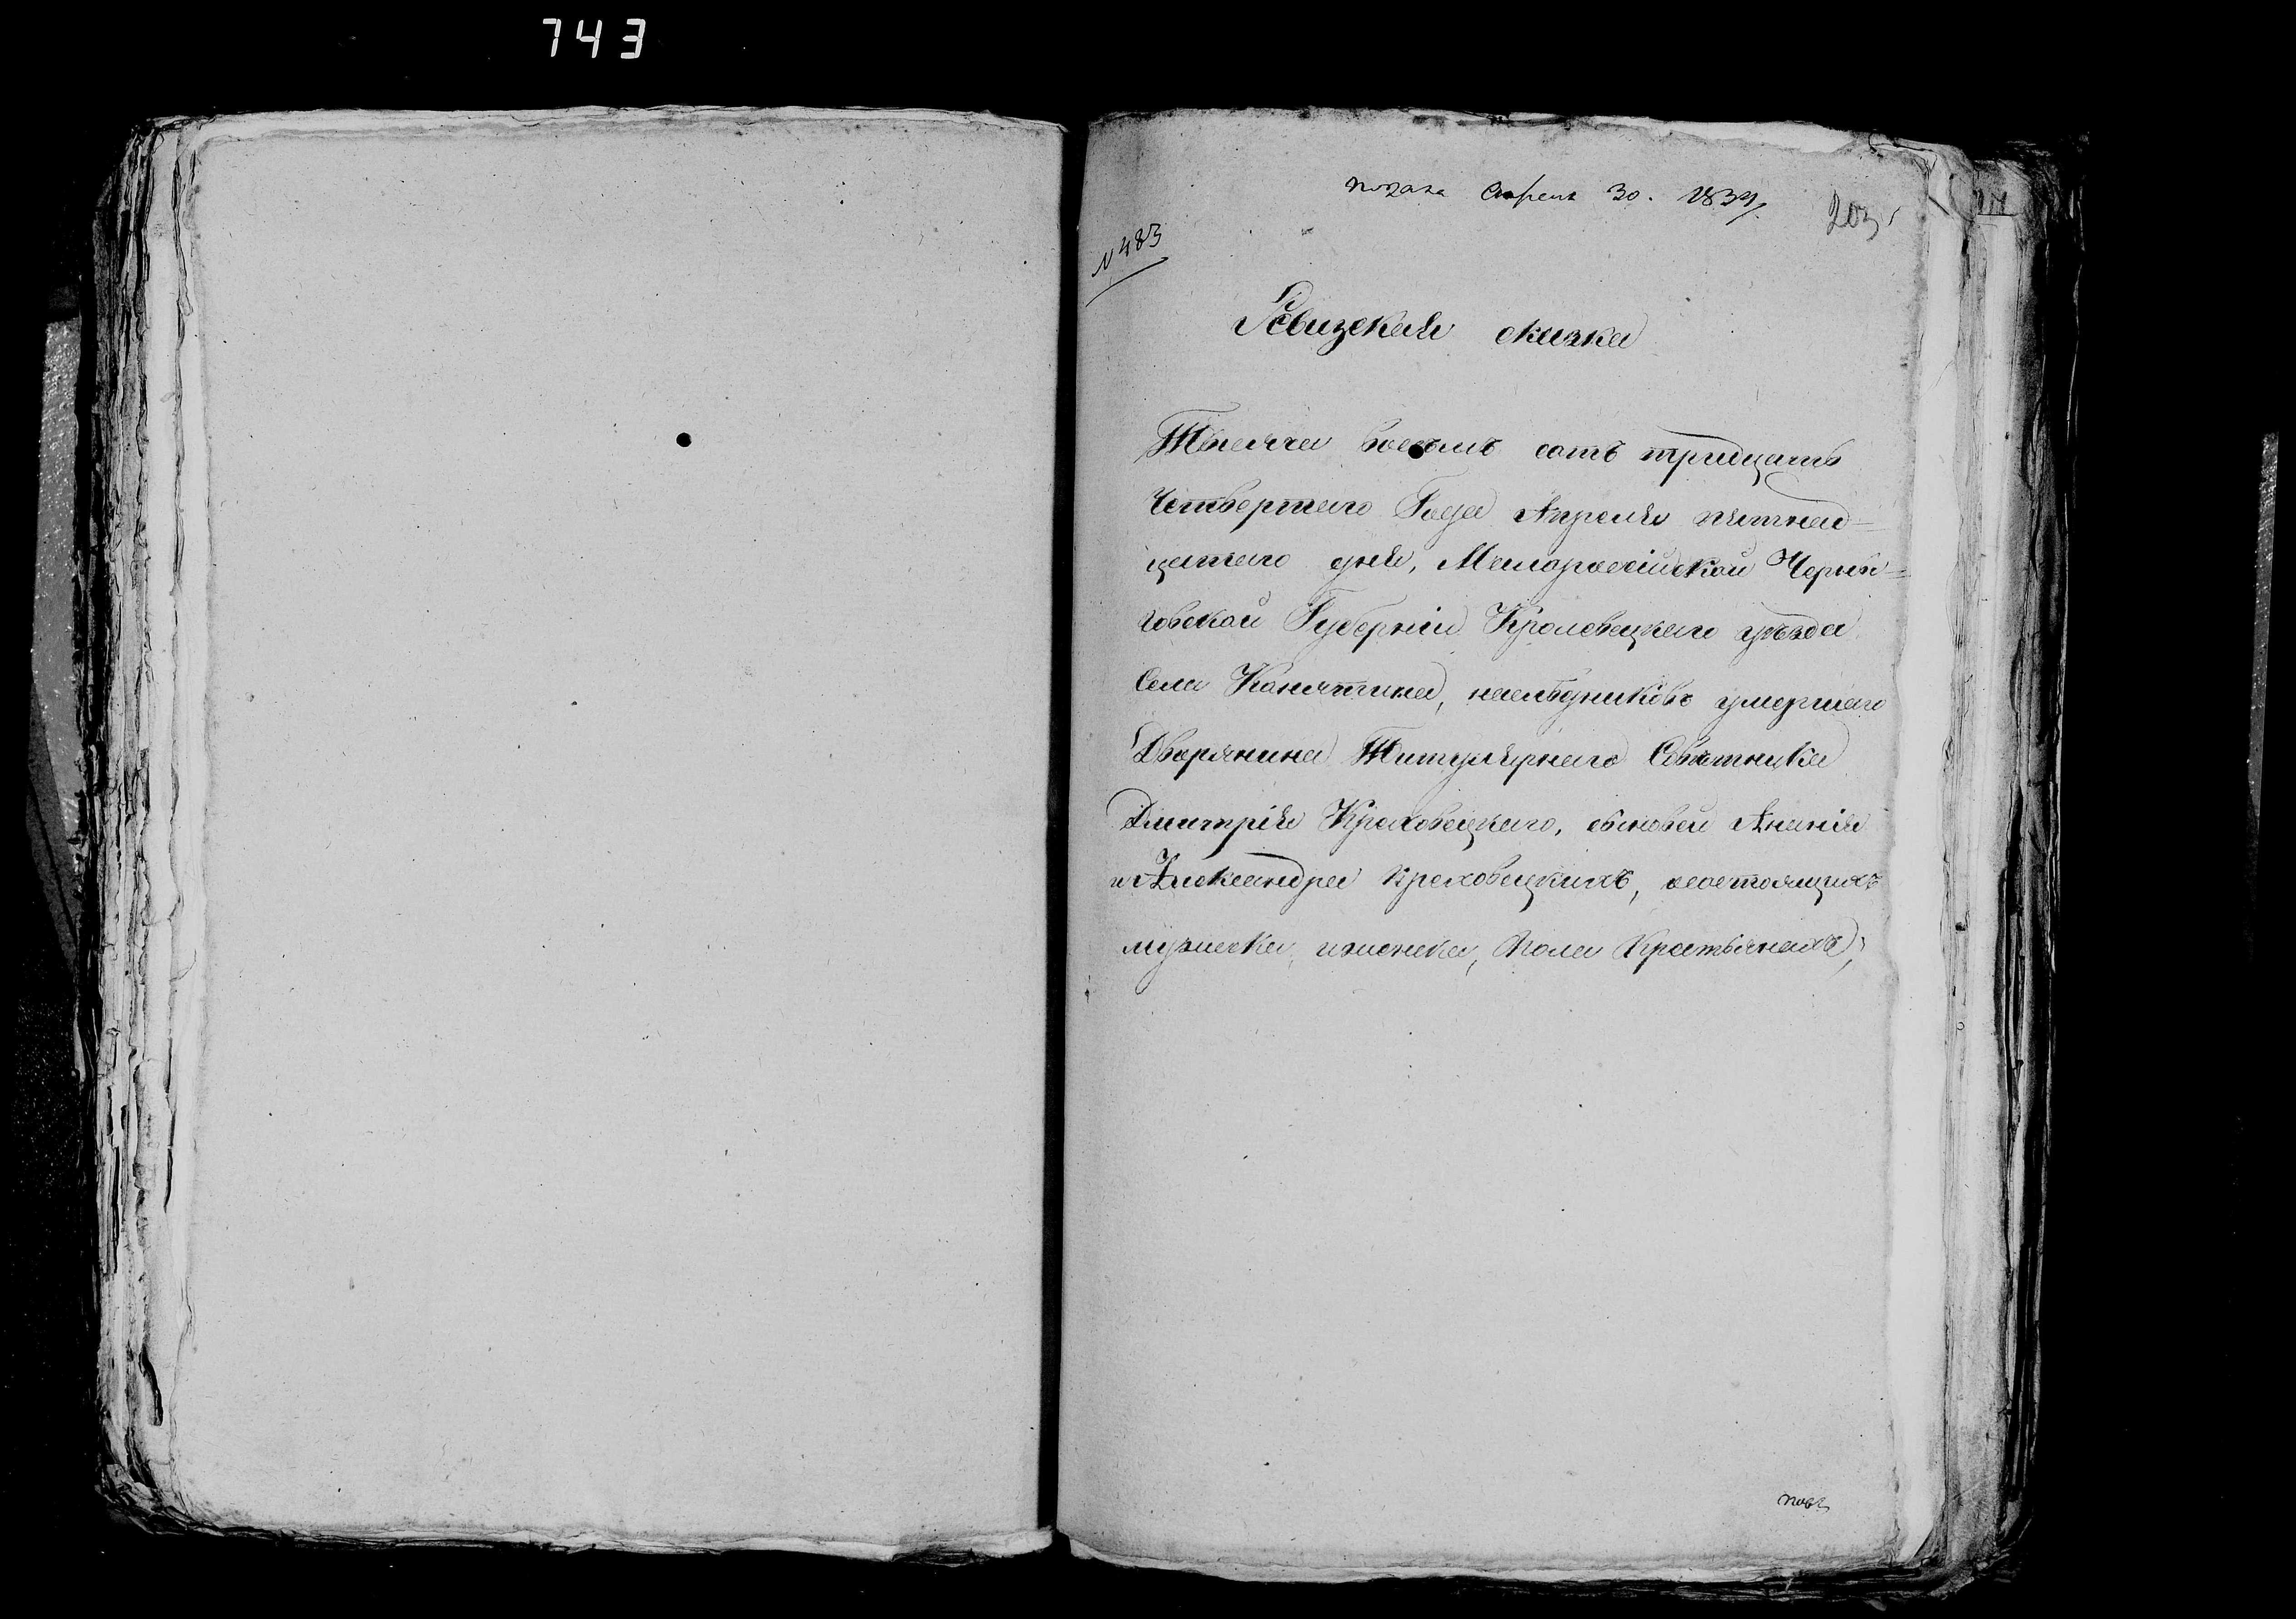 743
подана Апреля 30. 1834
203
N 483
Ревизская сказка
Тысяча восемъ сотъ тридцать
Четвертаго Года Апреля пятнад=
цатаго дня, Малоросейской Черни=
говской Губерніи Кролевецкаго уѣзда
Села Конятина, наслѣдниковъ умершаго
Дворянина Титулярнаго Совѣтника
Дмитрія Краховецкаго, сыновей Ананія
и Александра Краховецкихъ, состоящихъ
мужеска, и женска, пола Крестьянахъ,